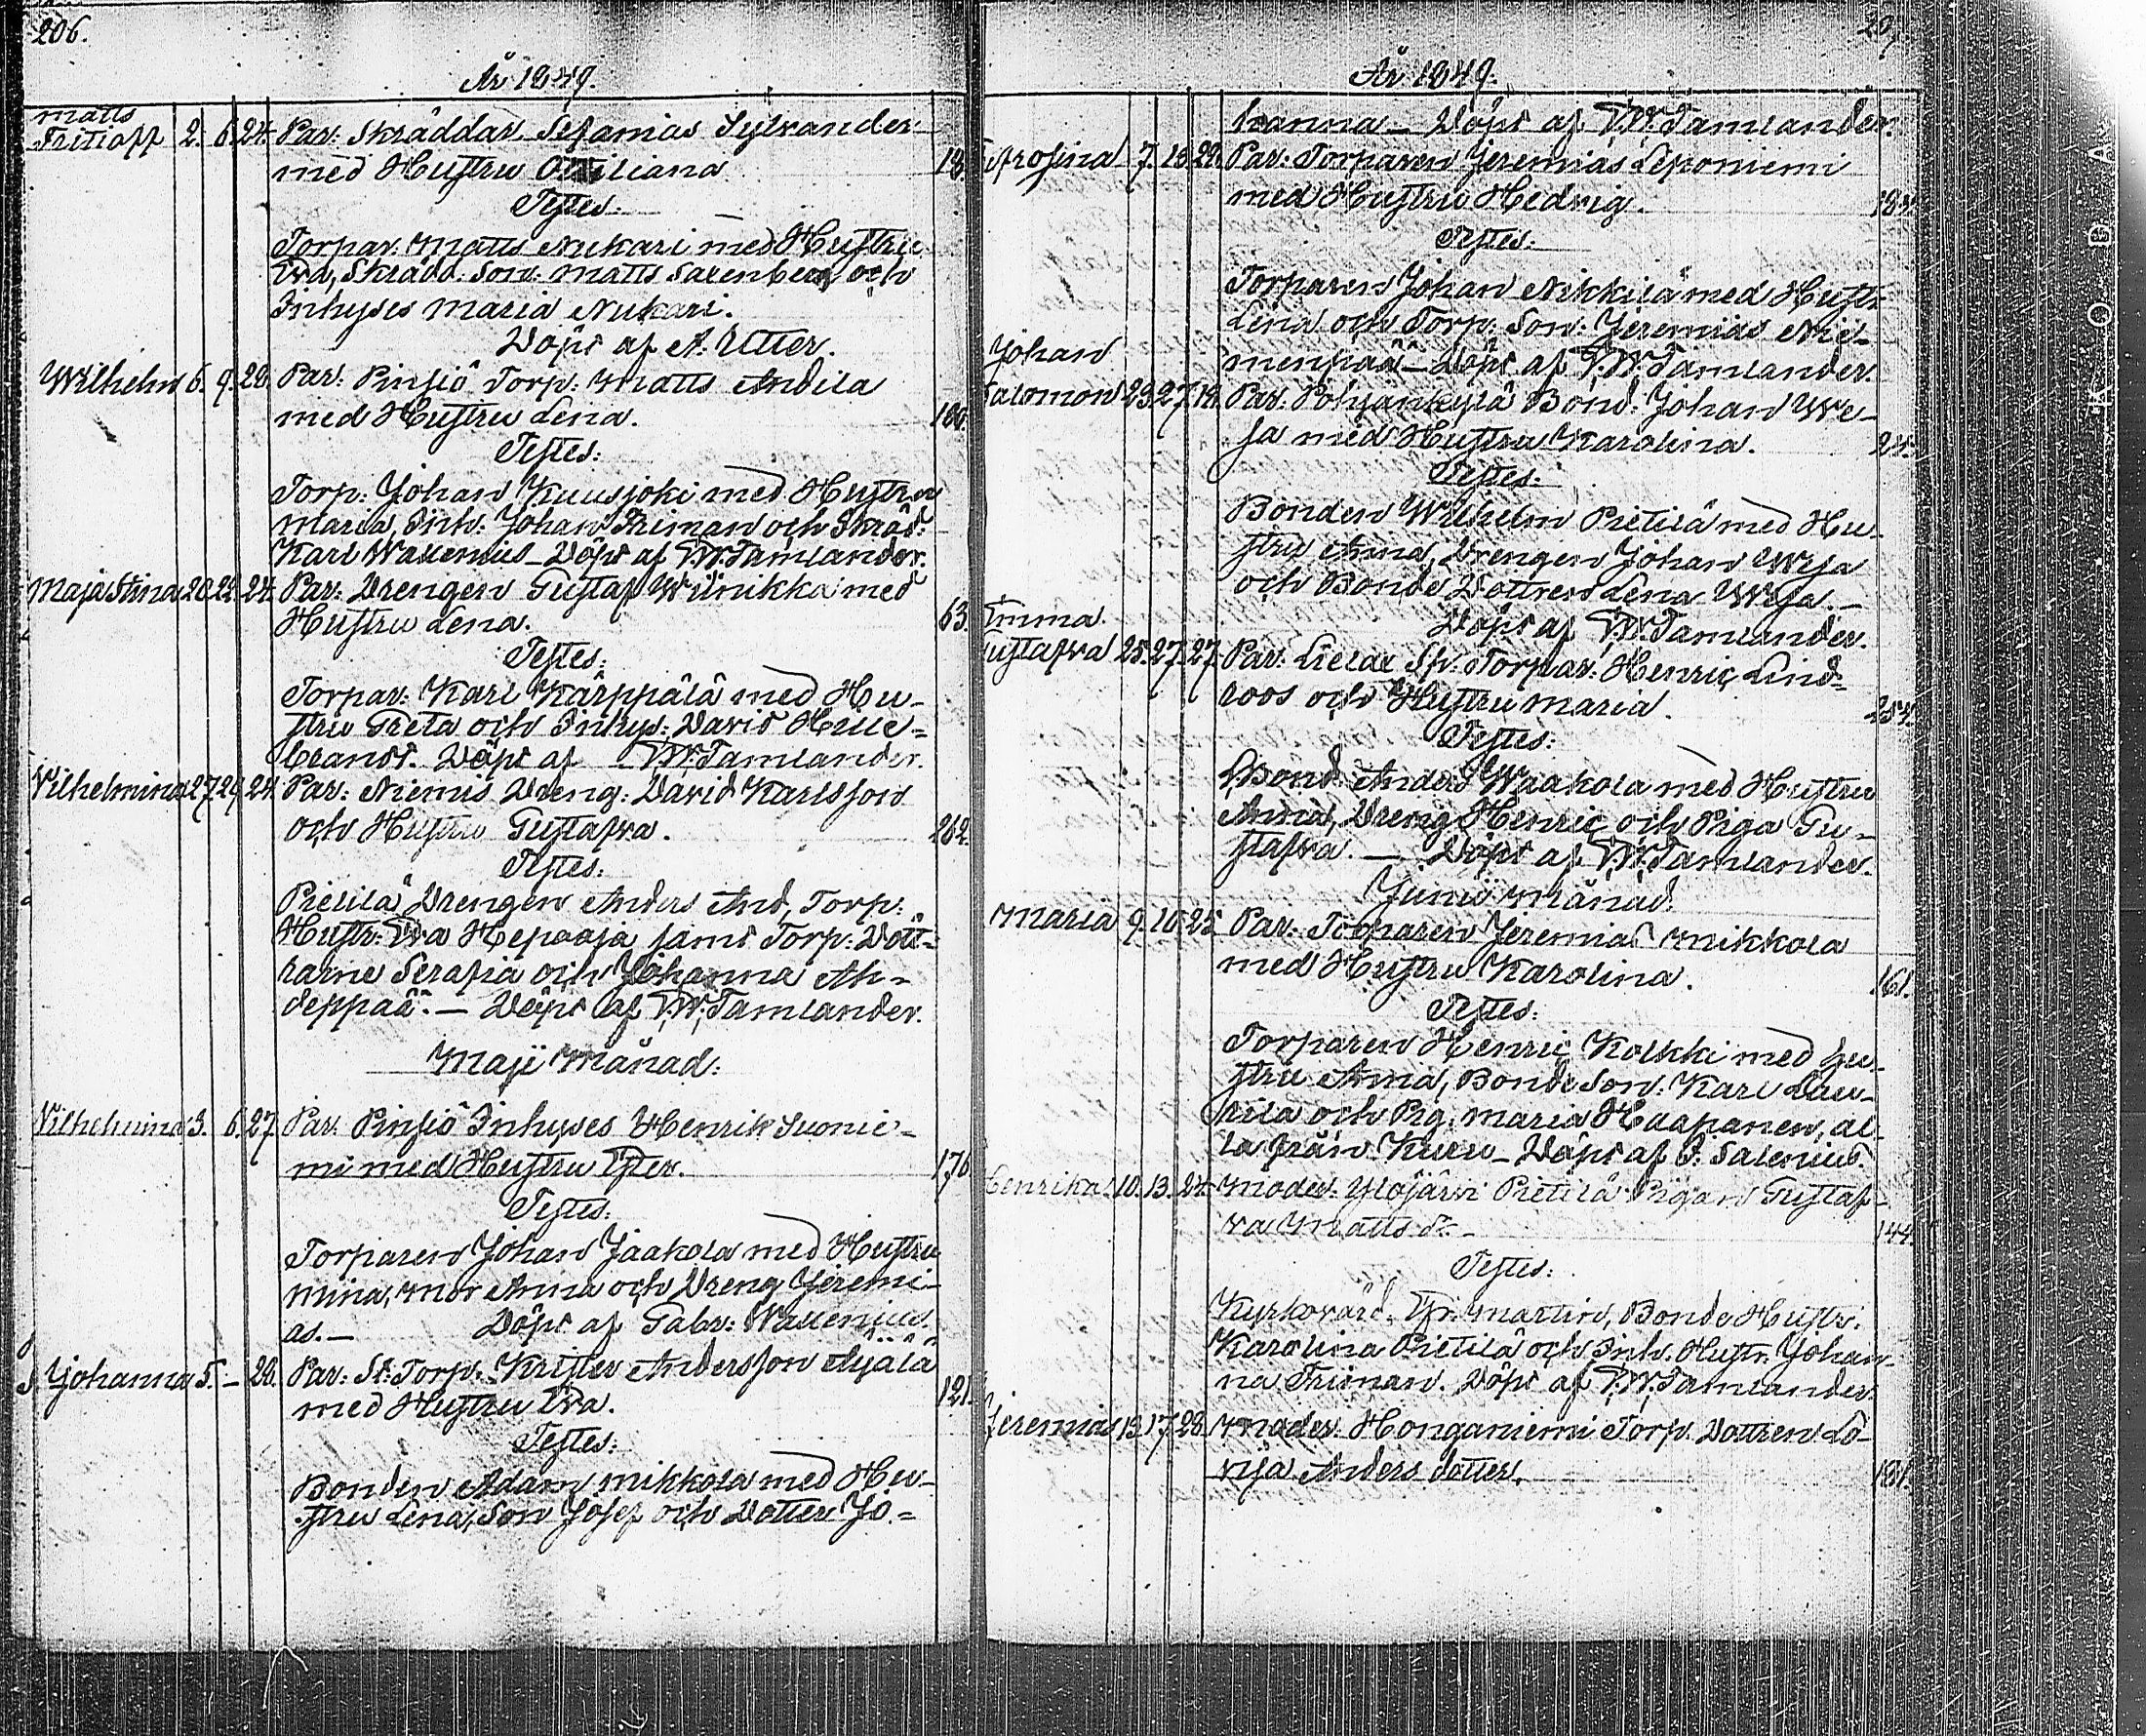 206.
År 1849.
Matts
Fritioff 2. 6. 24. Par: Skräddar. Sefanias Sylvander
med Hustru Ottiliana
Testes:
Torpar. Matts Nukari med Hustru
Eva, Skrädd. Son: Matts Sarenberg och
Inhyses Maria Nukari.
Döpt af A. Utter.
Wilhelm 6. 9. 20. Par: Pinsiö Torp: Matts Andila
med Hustru Lena. 180.
Testes:
Torp: Johan Kuusjoki med Hustru
Maria, Inh: Johan Friman och Skräd:
Karl Wallenius – Döpt af W. Tamlander.
Maja Stina 20. 22. 24. Par: Drengen Gustaf Wilnikka med
Hustru Lena. 63.
Testes:
Torpar: Karl Kärppälä med Hu-
stru Greta och Inhys: David Hille-
brandt. Döpt af W. Tamlander.
Vilhelmina 27. 29. 24. Par: Niemis Dreng: David Karlsson
och Hustru Gustafva. 262.
Testes:
Pietilä Drengen Anders And, Torp:
Hustr: Eva Hepooja samt Torp: Dött-
rarne Serafia och Johanna Ah-
deppää. – Döpt af T. W. Tamlander.
Maji Månad:
Vilhelmina 3. 6. 27. Par. Pinsiö Inhyses Henrik Suonie-
mi med Hustru Ester. 176
Testes:
Torparen Johan Jaakola med Hustru
Mina, Mor Anna och Dreng Jeremi-
as. – Döpt af Gabr: Wallenius.
Johanna 5. – 20. Par: St: Torp: Krister Andersson Äijälä
med Hustru Eva. 121.
Testes:
Bonden Adam Mikkola med Hu-
stru Lena, Son Josef och Dotter Jo-
207.
År 1849.
hanna – Döpt af T. W. Tamlander.
Eufrosina 7. 13. 29. Par: Torparen Jeremias Leponiemi
med Hustru Hedvig.
Testes:
Torparen Johan Nikkilä med Hustr
Lena och Torp: Son: Jeremias Nie-
menpää – Döpt af T. W. Tamlander.
Johan
Salomon 23. 27. 19. Par: Pohjankylä Bond: Johan We-
sa med Hustru Karolina. 24.
Testes:
Bonden Wilhelm Pietilä med Hu-
stru Anna, Drengen Johan Wesa
och Bonde Dottren Lena Wesa. –
Döpt af T. W. Tamlander.
Emma
Gustafva 25. 27. 27. Par: Torpar: Henric Lind-
roos och Hustru Maria. 254.
Testes:
Bond. Anders Waakola med Hustru
Anna, Dreng Henric och Piga Gu-
stafva. – Döpt af T. W. Tamlander.
Junii Månad:
Maria 9. 10. 25 Par: Torparen Jeremias Mikkola
med Hustru Karolina. 161.
Testes:
Torparen Henric Kolkki med hu-
stru Anna, Bonde Son: Karl Lau-
rila och Pig. Maria Haapanen, al-
la från Kuru – Döpt af F. Salenius.
Henrika 10. 13. 24. Moder: Ylöjärvi Pietilä Pigan Gustaf-
va Matts dr. 144.
Testes:
Kyrkovärd. Fr: Martin, Bonde Hustr:
Karolina Pietilä och Inh. Hustr. Johan-
na Friman. Döpt af T. W. Tamlander
Jeremias 13. 17. 28. Moder. Honganiemi Torp. Dottren Lo-
visa Anders dotter. 181.
KODA